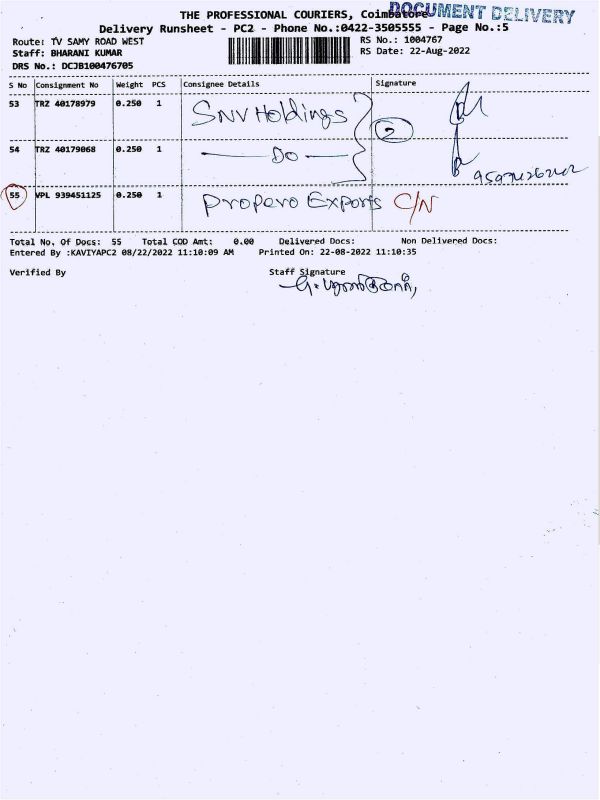 THE PROFESSIONAL COURIERS, Coimbatore
DOCUMENT DELIVERY
Delivery Runsheet - PC2 - Phone No.:0422-3505555 - Page No.:5
Route: TV SAMY ROAD WEST
RS No.: 1004767
Staff: BHARANI KUMAR
RS Date: 22-Aug-2022
DRS No.: DCJB100476705
S No Consignment No Weight PCS Consignee Details Signature
53 TRZ 40178979 0.250 1 SNV Holdings
2
54 TRZ 40179068 0.250 1 DO
55 VPL 939451125 0.250 1 Propero Exports C/N
Total No. Of Docs: 55 Total COD Amt: 0.00 Delivered Docs: Non Delivered Docs:
Entered By :KAVIYAPC2 08/22/2022 11:10:09 AM Printed On: 22-08-2022 11:10:35
Verified By Staff Signature